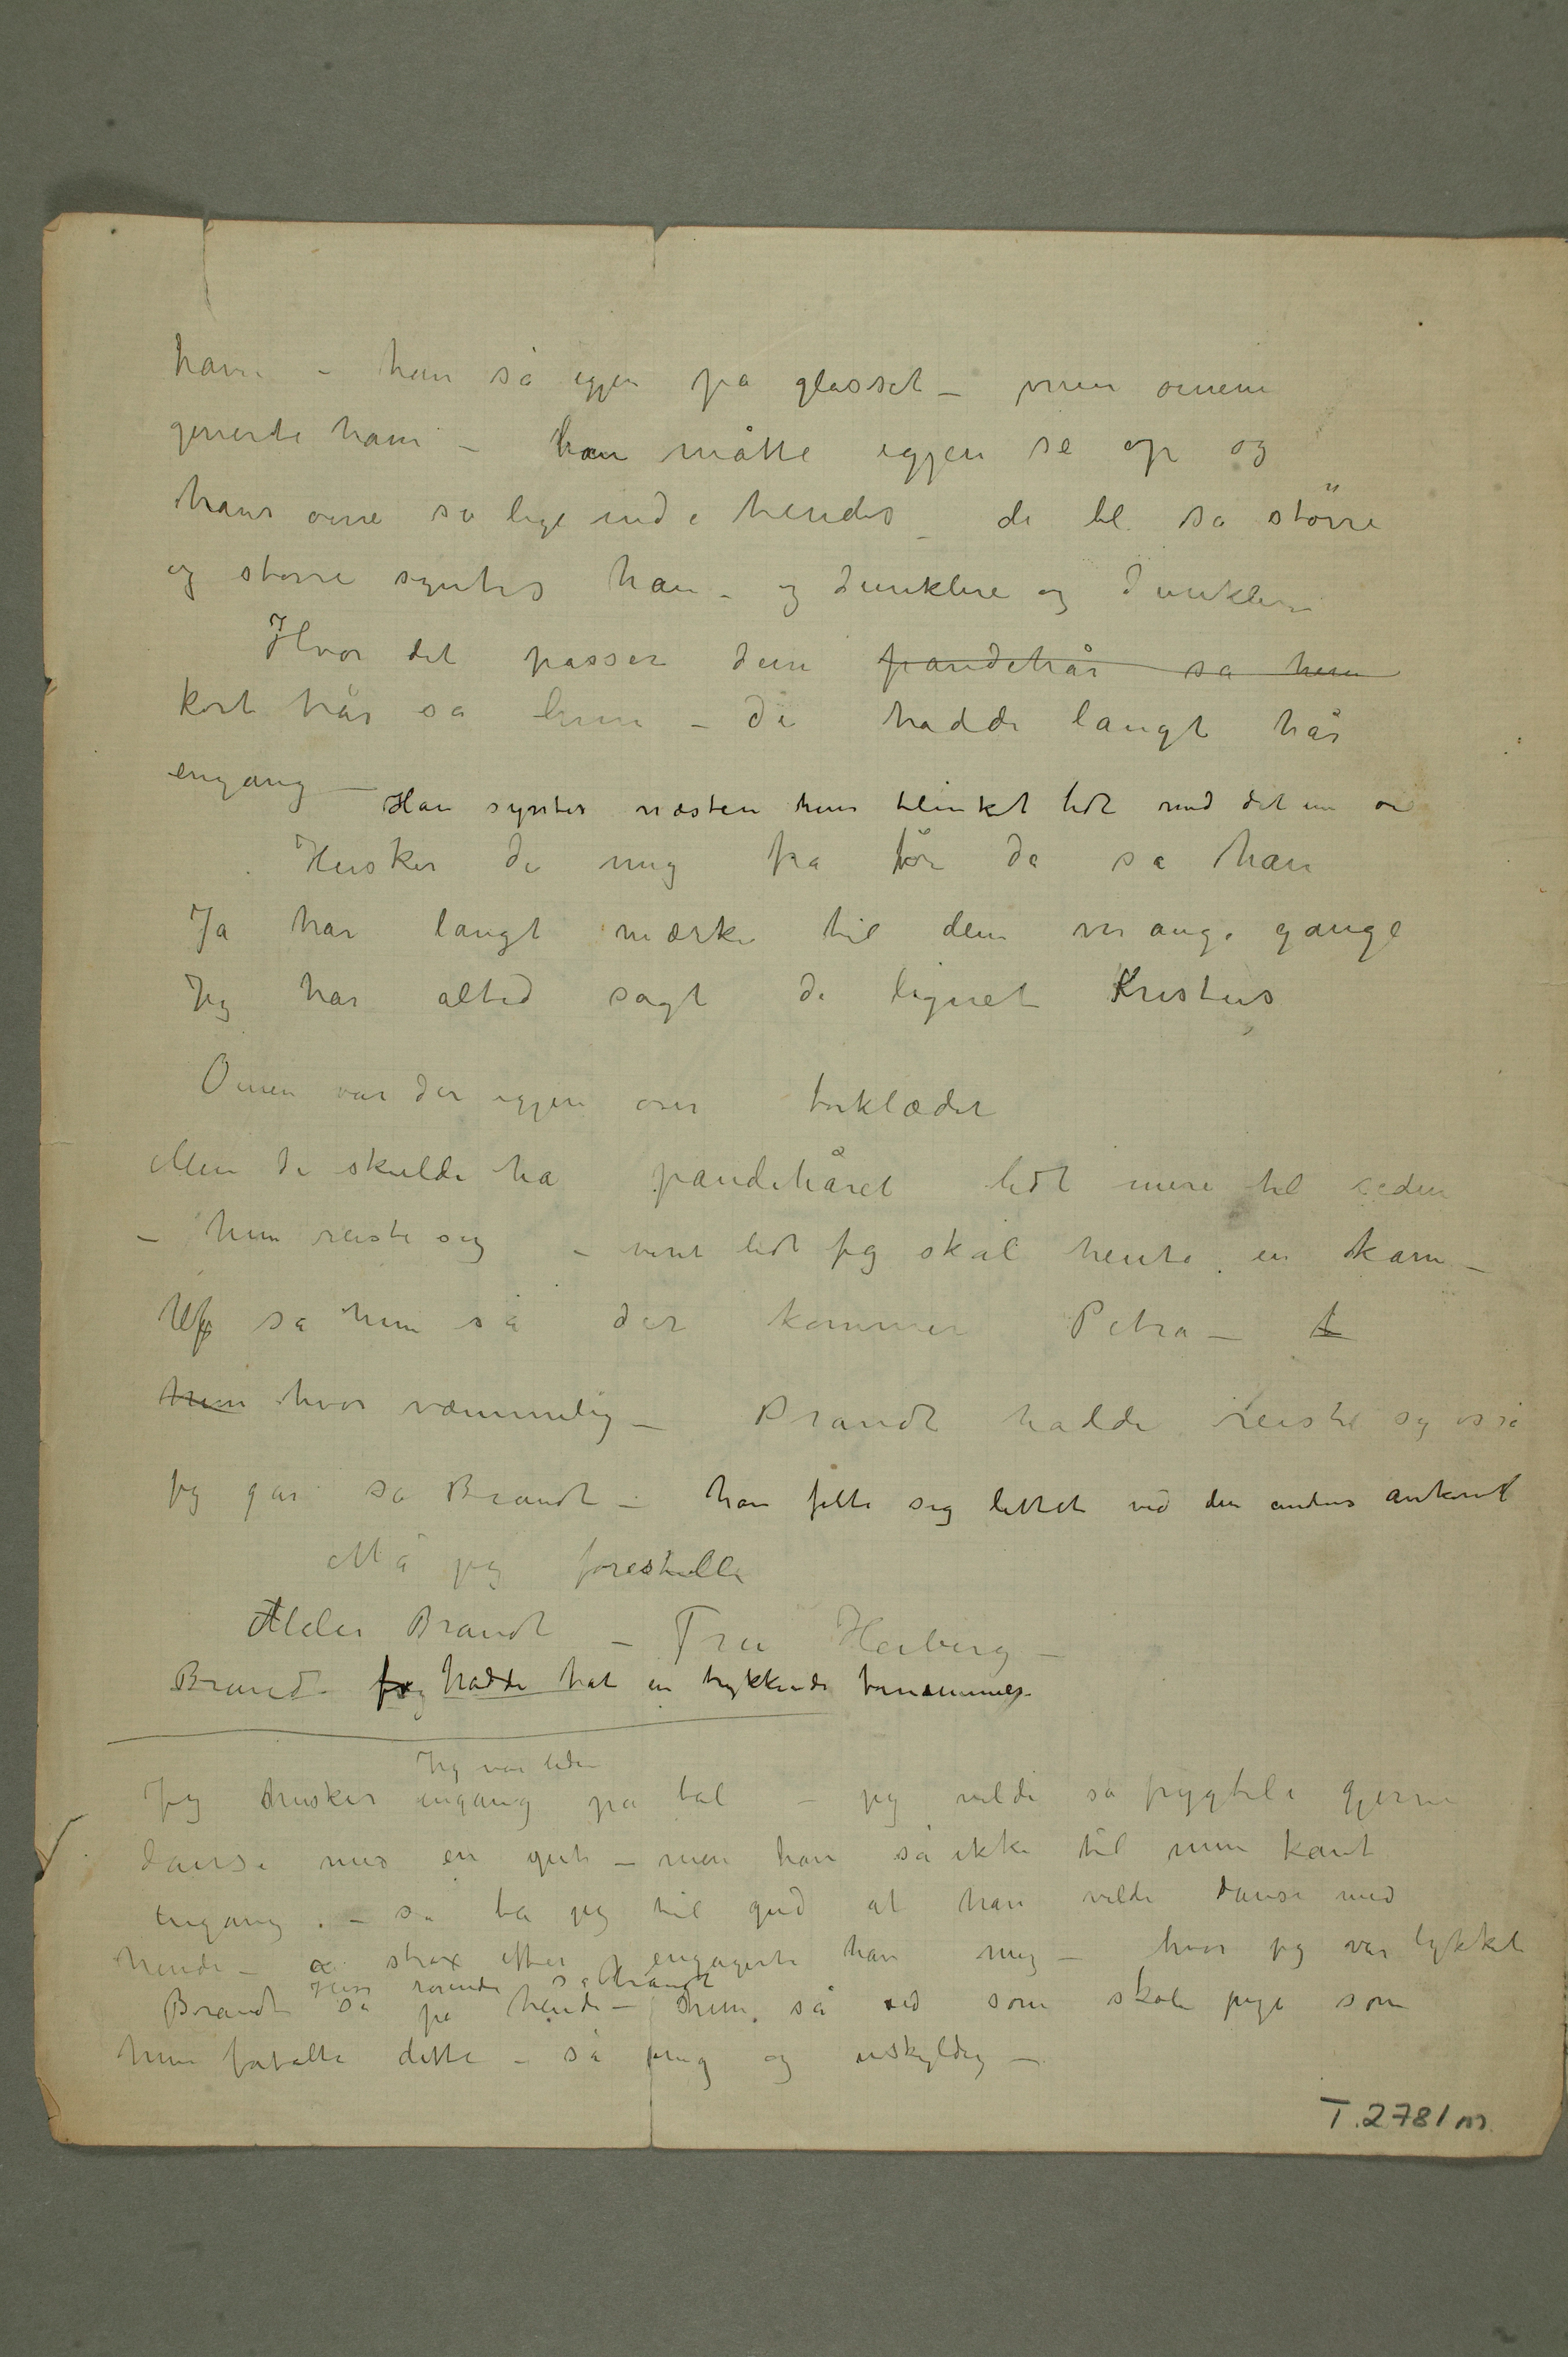 ham – han så igjen på glasset – men øinene
generte ham – han måtte igjen se op og
hans øine så lige ind i hendes – de ble så större
og større syntes han – og dunklere og dunklere
Hvor det passer dem pandehår sa hun
kort hår sa hun – de hadde langt hår
engang – Han syntes næsten hun blinket lidt med det ene øie
Husker de mig fra før da sa han
Ja har langt mærke til dem mange gange
Jeg har altid sagt de lignet Kristus
Øinen var der igjen over tørklædet
Men de skulde ha pandehåret lidt mere til siden
– hun reiste sig – vent lidt jeg skal hente en kam –
Uf sa hun så der kommer Petra –
hun hvor væmmelig – Brandt hadde reist sig også
jeg går sa Brandt – han følte sig lettet ved den andens ankomst
Må jeg forestille
Maler Brandt – Fru Heiberg –
Brandt hadde hat en trykkende fornemmelse
Jeg var liden
Jeg husker engang på bal – jeg vilde så frygteli gjerne
danse med en gut – men han så ikke til min kant
engang. – så ba jeg til gud at han vilde danse med
hende – strax efter engagerte han mig – hvor jeg var lykkelig
Hvor rørende sa Brandt
Brandt så på hende – hun så ud som skole pige som
hun fortalte dette – så ung og uskyldig –
T.2781m